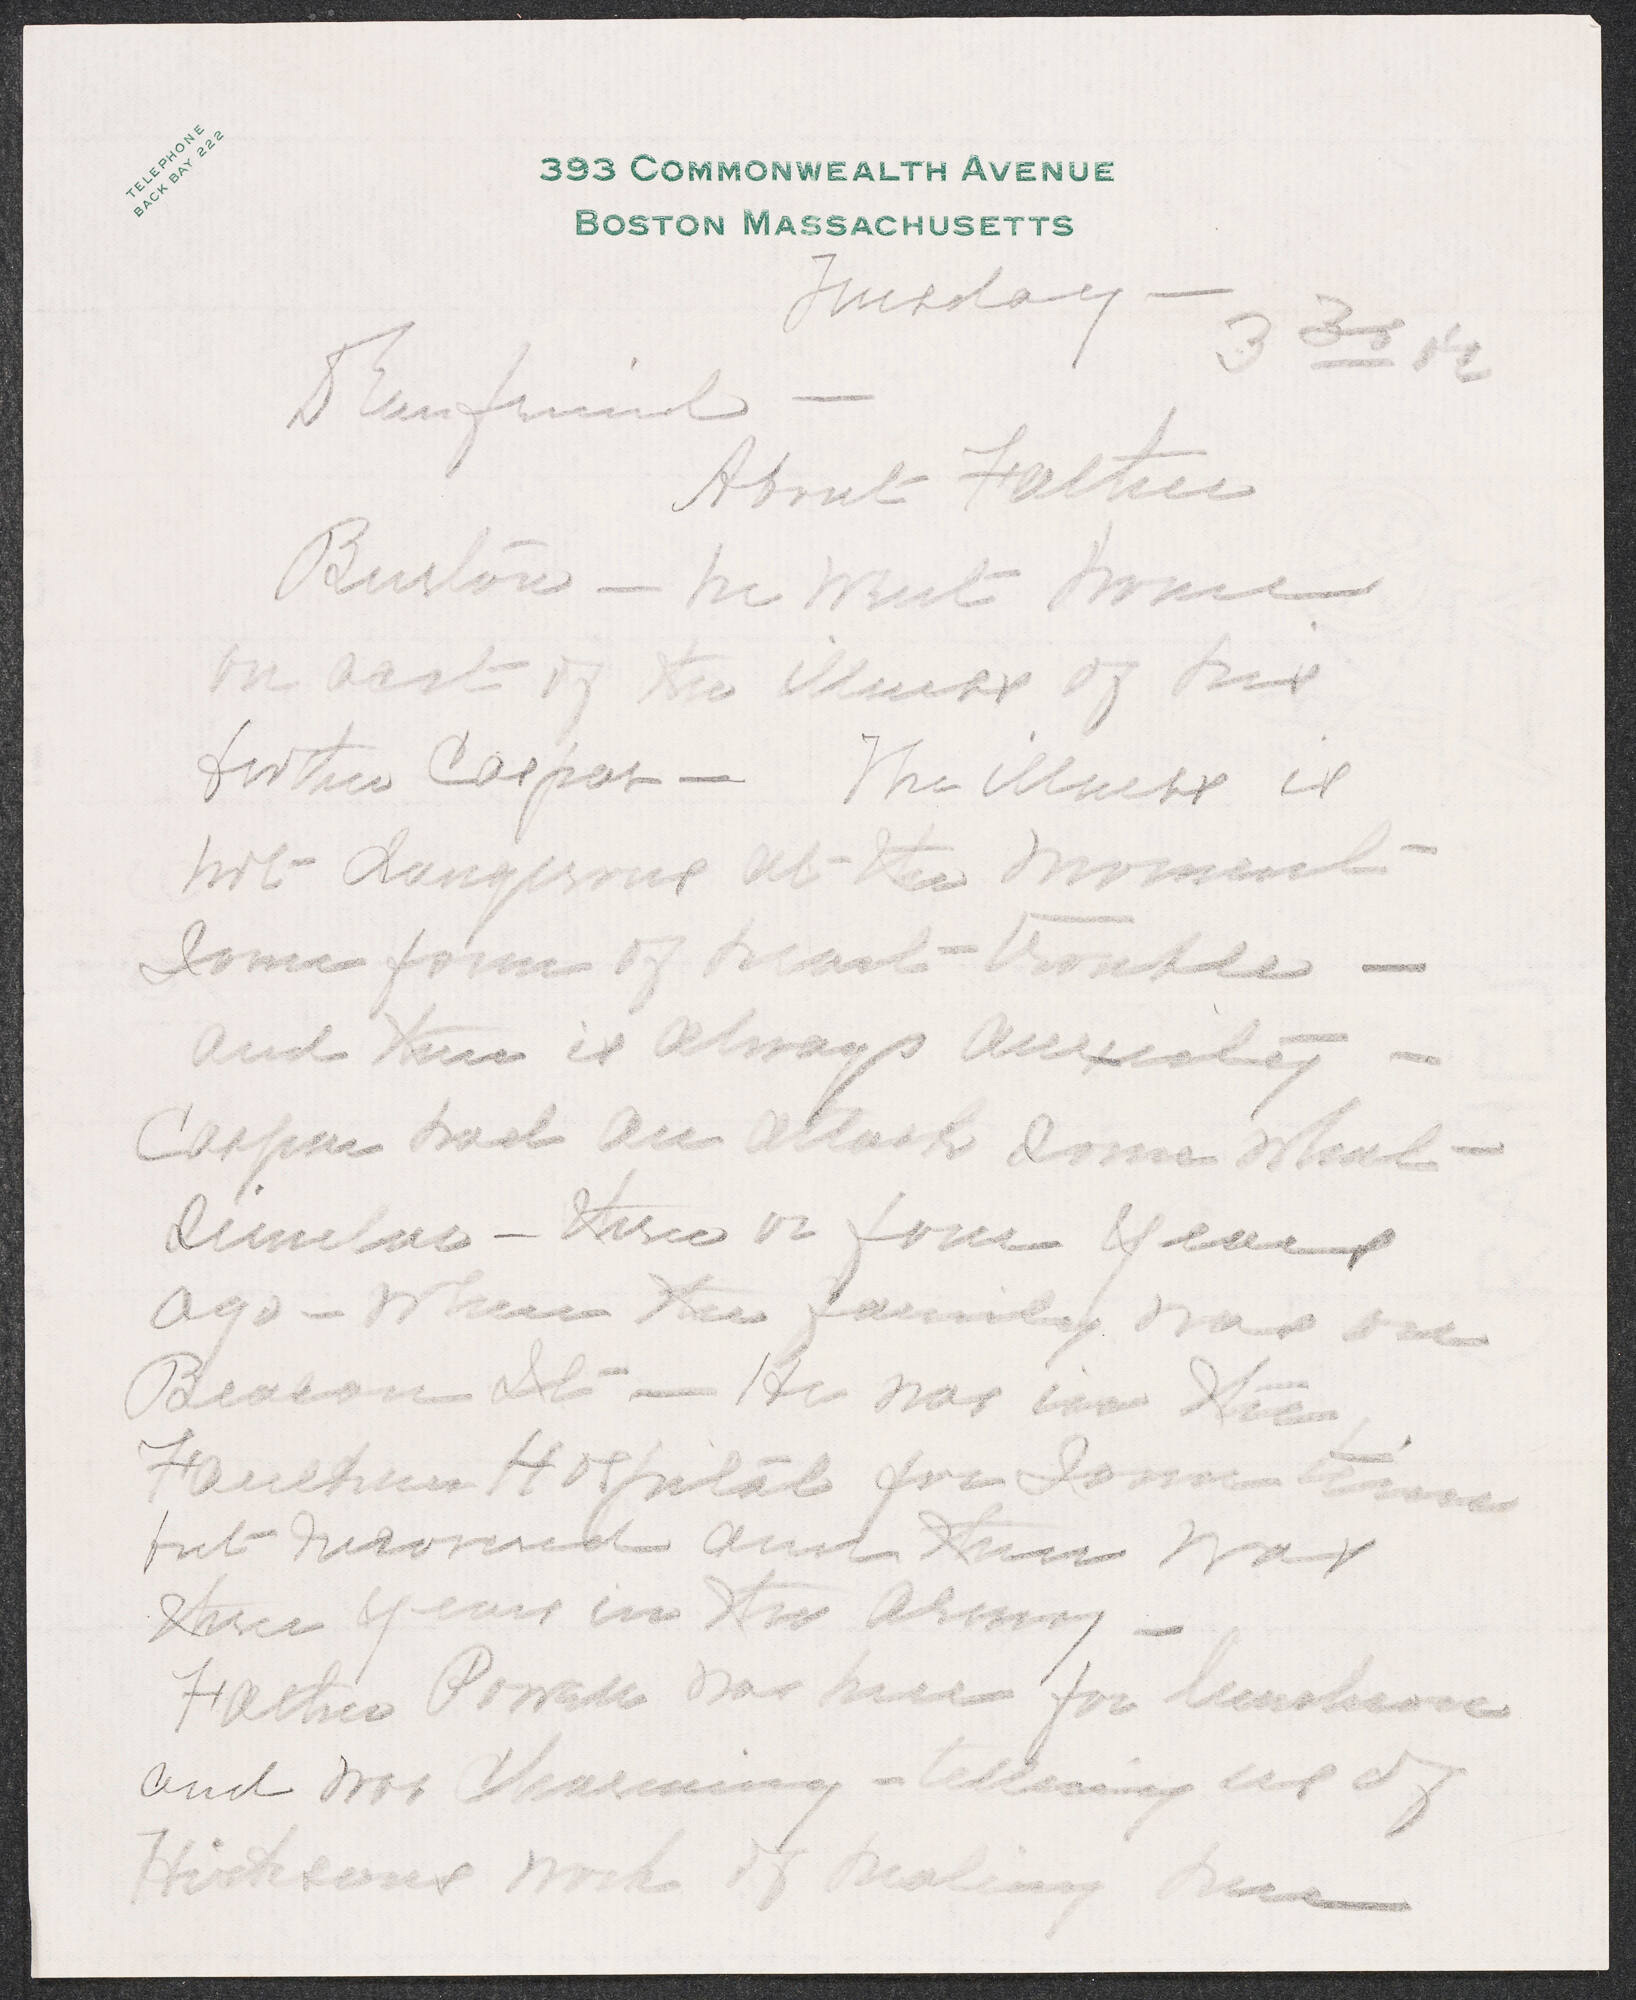 TELEPHONE
BACK BAY 222
393 COMMONWEALTH AVENUE
BOSTON MASSACHUSETTS
Tuesday —
3 30
D Ear friend —
About Father
Burton — he went home
on acct of the illness of his
brother Caspar — The illness is
not dangerous at the moment –
Some form of heart – trouble —
and there is always anxiety –
Caspar had an attack some what –
similar – three or four years
ago – when the family was on
Beacon St — He was in the
Faulkner Hospital for some time
but recovered and then was
three years in the Army –
Father Powell was here for luncheon
and was charming – telling us of
Hicksons work of healing here